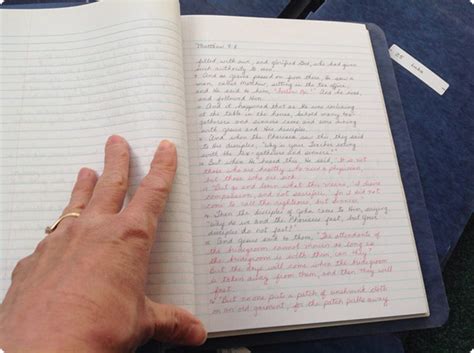 Matthew 9:8
filled with awe, and glorified God, who had given
such authority to men.
9 And as Jesus passed on from there, He saw a
man, called Matthew, sitting in the tax office,
and He said to him, "Follow Me!" And he rose,
and followed Him.
10 And it happened that as He was reclining
at the table in the house, behold many tax-
gatherers and sinners came and were dining
with Jesus and His disciples.
11 And when the Pharisees saw this, they said
to His disciples, "Why is your Teacher eating
with the tax-gatherers and sinners?"
12 But when He heard this, He said, "It is not
those who are healthy who need a physician,
but those who are sick.
13 "But go and learn what this means, 'I desire
compassion, and not sacrifice,' for I did not
come to call the righteous, but sinners."
14 Then the disciples of John came to Him, saying,
"Why do we and the Pharisees fast, but Your
disciples do not fast?"
15 And Jesus said to them, "The attendants of
the bridegroom cannot mourn as long as
the bridegroom is with them, can they?
But the days will come when the bridegroom
is taken away from them, and then they will
fast.
16 "But no one puts a patch of unshrunk cloth
on an old garment; for the patch pulls away
Luke